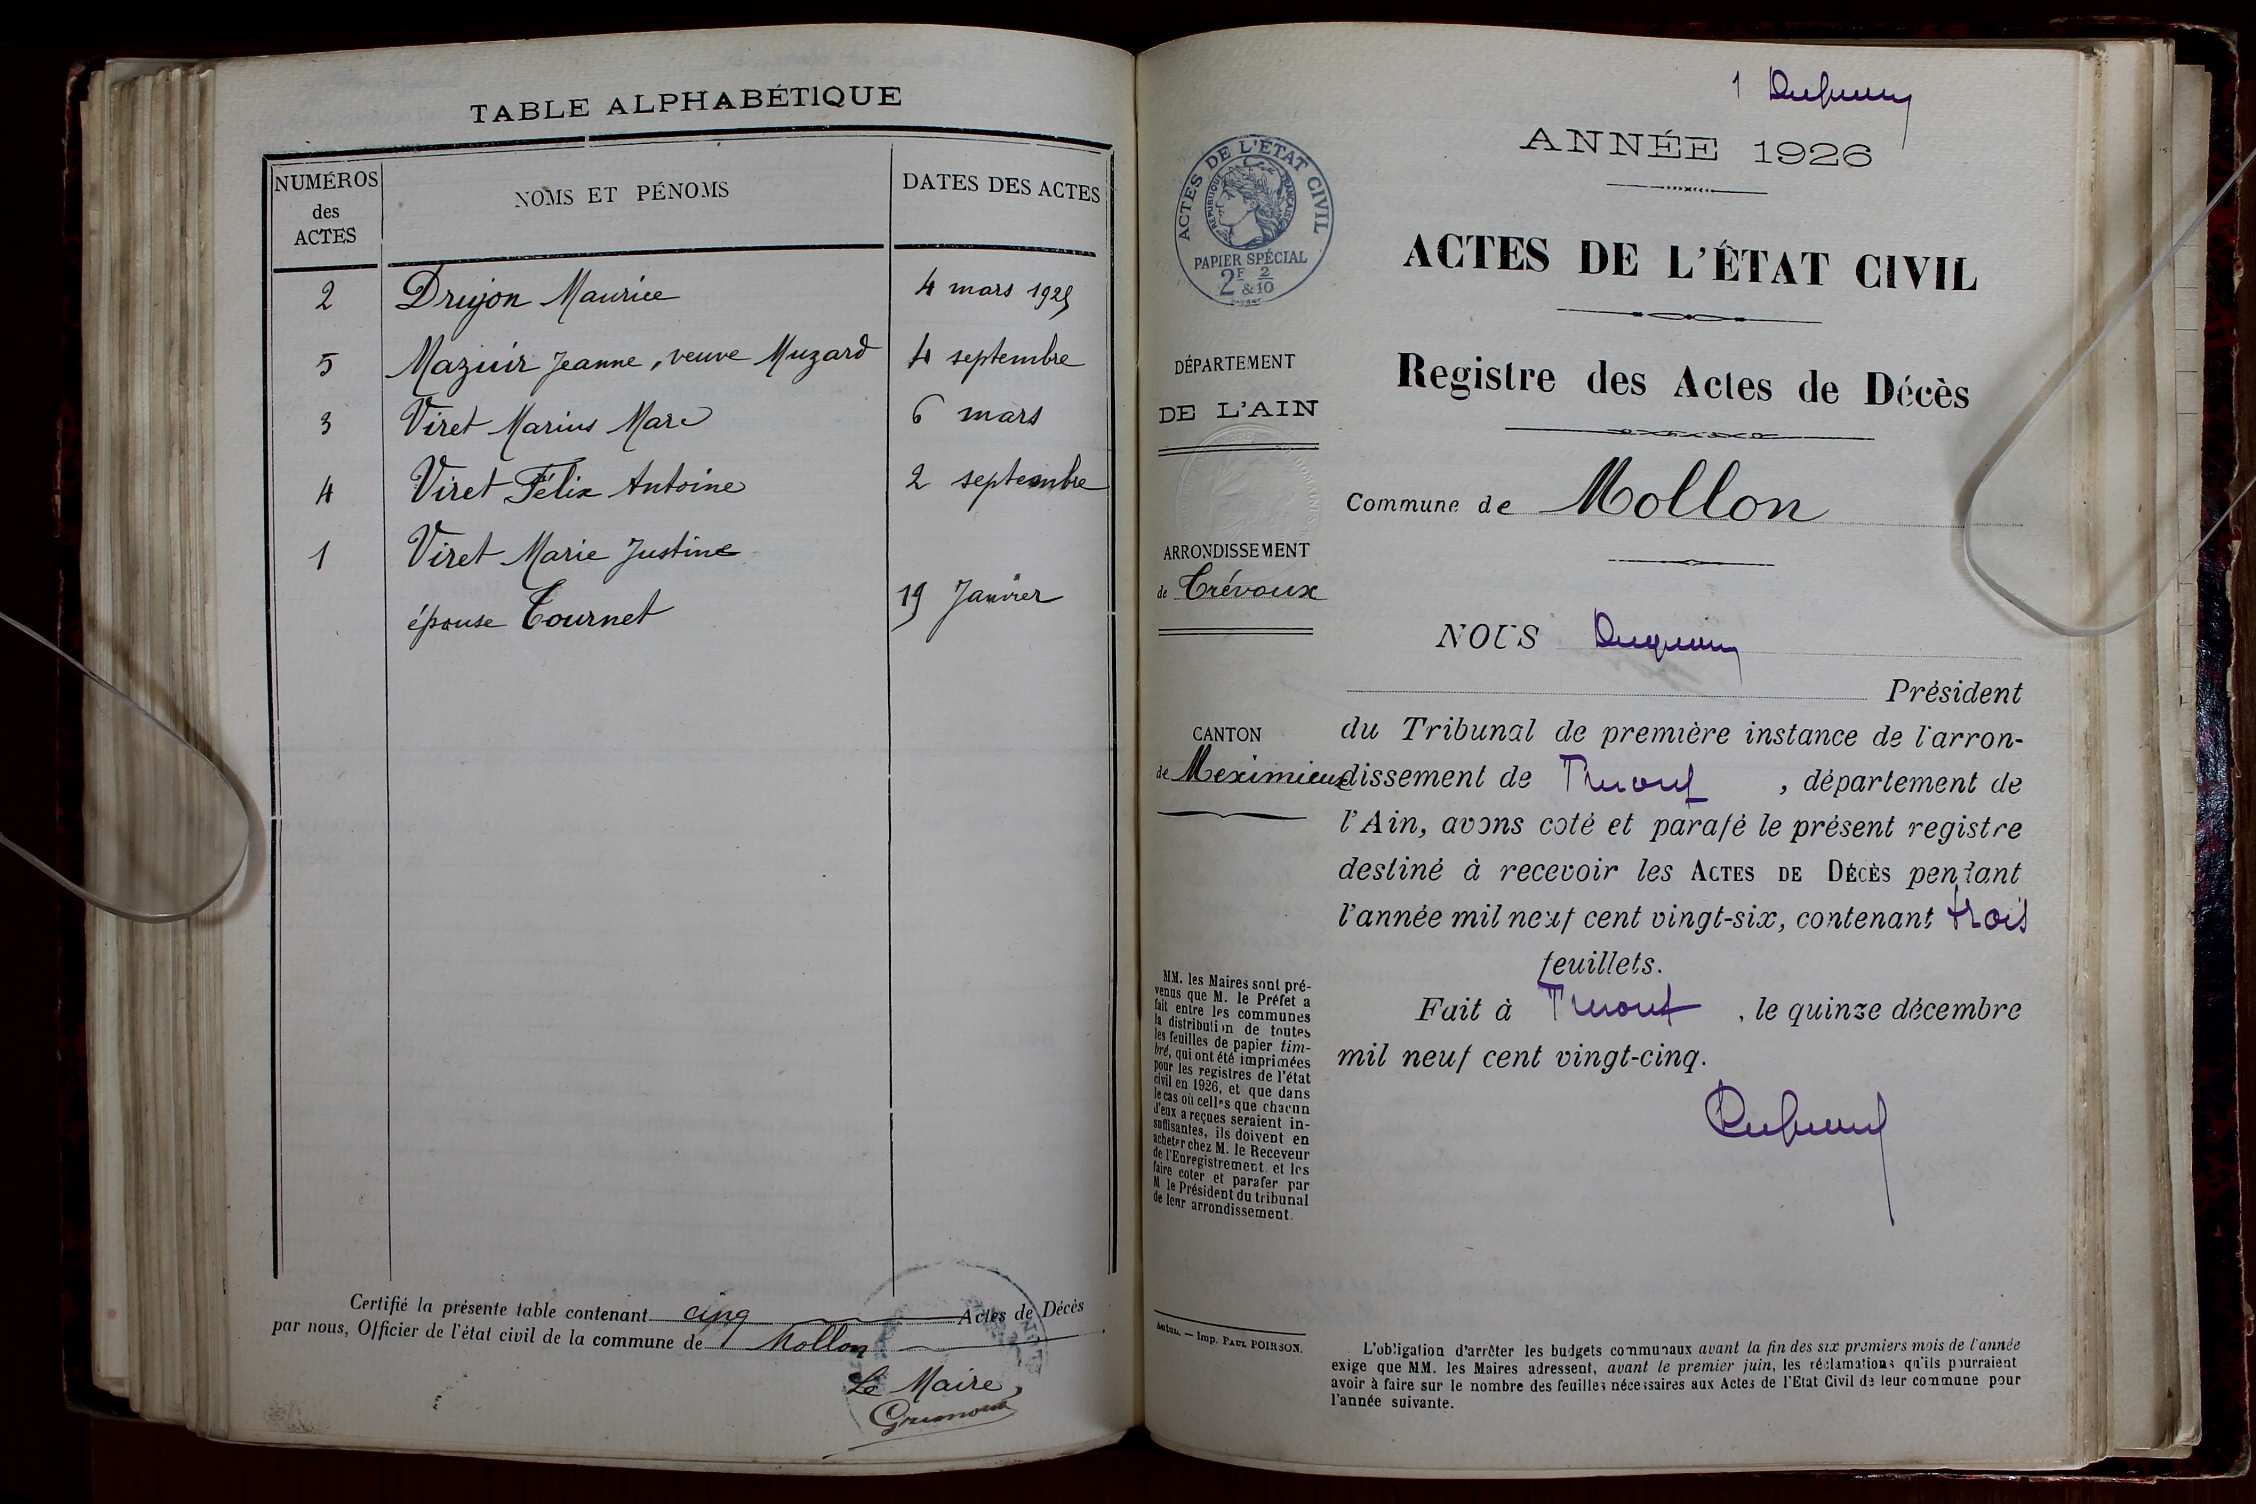 TABLE ALPHABÉTIQUE
NUMÉROS des ACTES
NOMS ET PÉNOMS
DATES DES ACTES
2 Drujon Maurice 4 mars 1925
5 Mazuir Jeanne, veuve Muzard 4 septembre
3 Viret Marius Marc 6 mars
4 Viret Félix Antoine 2 septembre
1 Viret Marie Justine
épouse Tournet 19 Janvier
Certifié la présente table contenant cinq Actes de Décès
par nous, Officier de l'état civil de la commune de Mollon
Le Maire
1
ANNÉE 1926
ACTES DE L'ÉTAT CIVIL
RÉPUBLIQUE FRANÇAISE
PAPIER SPÉCIAL
2F & 2/10
ACTES DE L'ÉTAT CIVIL
Registre des Actes de Décès
DÉPARTEMENT
DE L'AIN
Commune de Mollon
ARRONDISSEMENT
de Trévoux
NOUS
Président
du Tribunal de première instance de l'arron-
CANTON
de Meximieux
dissement de Trévoux, département de
l'Ain, avons coté et parafé le présent registre
destiné à recevoir les ACTES DE DÉCÈS pendant
l'année mil neuf cent vingt-six, contenant trois
feuillets.
Fait à Trévoux, le quinze décembre
mil neuf cent vingt-cinq.
MM. les Maires sont pré-
venus que M. le Préfet a
fait entre les communes
la distribution de toutes
les feuilles de papier tim-
bré, qui ont été imprimées
pour les registres de l'état
civil en 1926, et que dans
le cas où celles que chacun
d'eux a reçues seraient in-
suffisantes, ils doivent en
acheter chez M. le Receveur
de l'Enregistrement et les
faire coter et parafer par
M le Président du tribunal
de leur arrondissement.
Autun. — Imp. PAUL POIRSON.
L'obligation d'arrêter les budgets communaux avant la fin des six premiers mois de l'année
exige que MM. les Maires adressent, avant le premier juin, les réclamations qu'ils pourraient
avoir à faire sur le nombre des feuilles nécessaires aux Actes de l'Etat Civil de leur commune pour
l'année suivante.